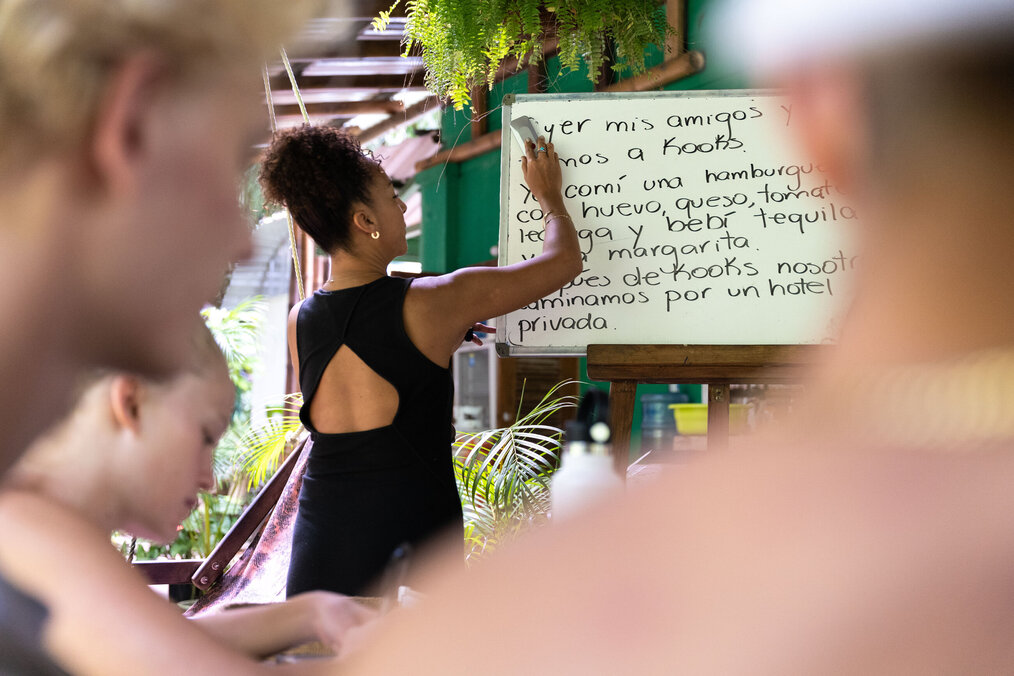 Ayer mis amigos y
a Kooks.
Yo comí una hamburgues
con huevo, queso, tomate
lechuga y bebí tequila
margarita.
Después de Kooks nosotr
caminamos por un hotel
privada.